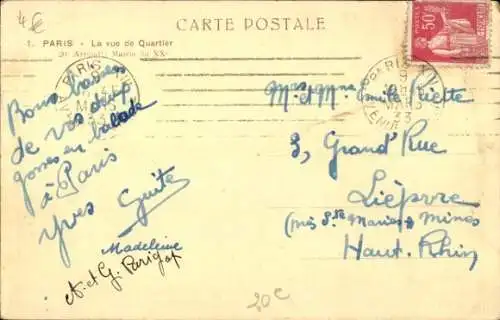 4 €
CARTE POSTALE
1. PARIS - La vue de Quartier
20e Arrondt Mairie du XXe
50c
PARIS
PARIS
33
Bons baisers
de vos deux
gosses en balade
à Paris
Yves Guite
Madeleine
A. et G. Parigot
Mr et Mme Emile
3, Grand'Rue
Lièpvre
(près Ste Maries Mines
Haut-Rhin
20 €